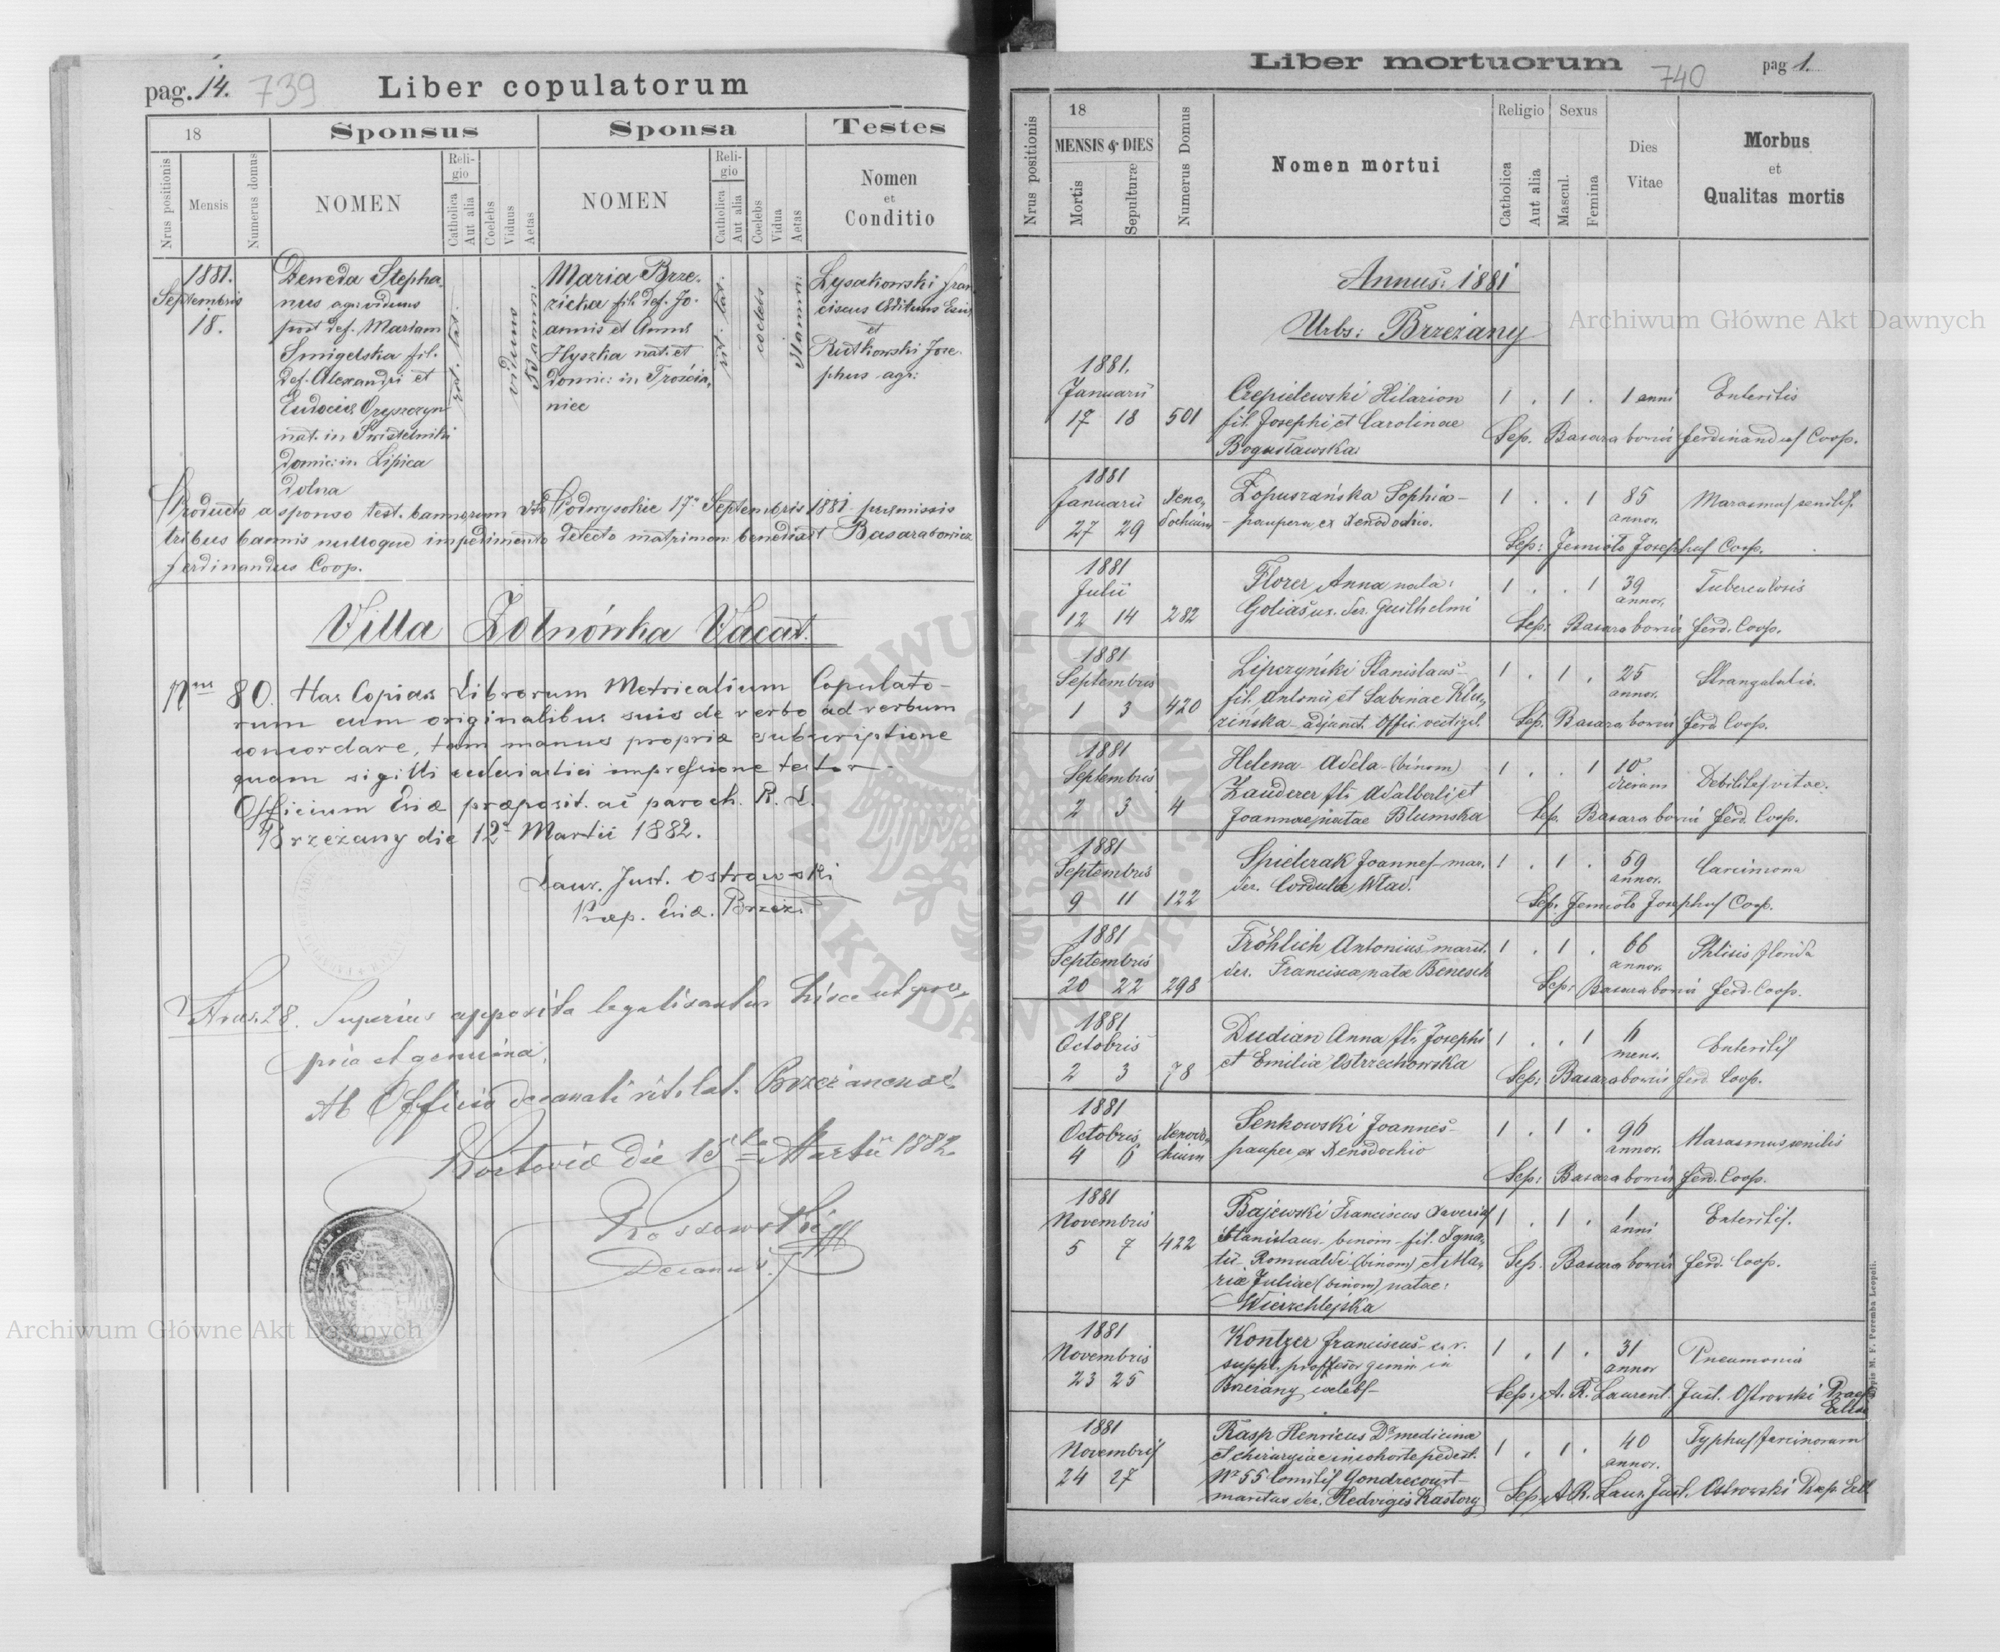 pag. 14. 739 Liber copulatorum
18 Sponsus Sponsa Testes
Nrus positionis Mensis Numerus domus NOMEN Religio Catholica Aut alia Coelebs Viduus Aetas NOMEN Religio Catholica Aut alia Coelebs Vidua Aetas Nomen et Conditio
1881.
Septembris
18.
Deneda Stepha-
nus agr. viduus
post def. Mariam
Smigelska fil.
def. Alexandri et
Eudociae
nat. in Swistelniki
domic: in Lipica
dolna
rit. lat.
viduus
annor:
Maria Brze-
zicka fil. def. Jo-
annis et Annae
Hyszka nat. et
domic: in Trościa-
niec
rit. lat.
coelebs
annor:
Lysakowski Fran
ciscus
et
Rutkowski Jose-
phus agr:
Producto a sponso test. bannorum dto Podwysokie 17a Septembris 1881 praemissis
tribus bannis nulloque impedimento detecto matrimon: benedixit Basarabowicz
Ferdinandus Coop.
Villa Żołnówka Vacat.
Nrus 80. Has Copias Librorum Metricalium Copulato-
rum cum originalibus suis de verbo ad verbum
concordare, tam manus propriae subscriptione
quam sigilli ecclesiastici impressione testor.
Officium Eccliae praeposit. ac paroch. R. L.
Brzeżany die 12a Martii 1882.
Laur. Just. Ostrowski
Praep. Eccliae. Brzeż:
Nrus. 28. Superius apposita legalisantur hisce ut pro-
pria et genuina.
Ab Officio decanali rit. lat. Brzezanensi
die 15ta Martii 1882.
Rossowski
Decanus.
Liber mortuorum 740 pag 1.
Nrus positionis 18 MENSIS & DIES Mortis Sepulturæ Numerus Domus Nomen mortui Religio Catholica Aut alia Sexus Mascul. Femina Dies Vitae Morbus et Qualitas mortis
Annus: 1881
Urbs: Brzeżany
1881.
Januarii
17 18 501
Czepielewski Hilarion
fil. Josephi et Carolinae
Bogusławska
1 . 1 . 1 anni Enteritis
Sep. Basarabowicz Ferdinandus Coop.
1881
Januarii
27 29
Xeno-
dochium
Łopuszańska Sophia -
- paupera ex Xenodochio.
1 . . 1 85 annor. Marasmus senilis.
Sep: Jemioło Josephus Coop.
1881
Julii
12 14 282
Florer Anna nata:
Golias ux. der. Guilhelmi
1 . . 1 39 annor. Tuberculosis
Sep: Basarabowicz Ferd. Coop.
1881
Septembris
1 3 420
Lipczyński Stanislaus -
fil. Antonii et Sabinae Klu-
zińska - adjunct. Offic. vectigal.
1 . 1 . 25 annor. Strangulatio.
Sep. Basarabowicz Ferd. Coop.
1881
Septembris
2 3 4
Helena - Adela - (binom)
Zauderer fil. Adalberti et
Joannae natae Blumska
1 . . 1 10 dierum Debilitas vitae.
Sep. Basarabowicz Ferd. Coop.
1881
Septembris
9 11 122
Spielczak Joannes - mar.
der. Cordulae Wład.
1 . 1 . 59 annor. Carcinoma
Sep. Jemioło Josephus Coop.
1881
Septembris
20 22 298
Fröhlich Antonius marit.
der. Francisca nata Benesch
1 . 1 . 66 annor. Phtisis florida
Sep: Basarabowicz Ferd. Coop.
1881
Octobris
2 3 78
Dudian Anna fil. Josephi
et Emilia Ostrzechowska
1 . . 1 6 mens. Enteritis
Sep: Basarabowicz Ferd. Coop.
1881
Octobris
4 6
Xenodo-
chium
Senkowski Joannes -
pauper ex Xenodochio
1 . 1 . 96 annor. Marasmus senilis
Sep: Basarabowicz Ferd. Coop.
1881
Novembris
5 7 422
Bajewski Franciscus Xaverius
Stanislaus - binom - fil. Igna-
tii Romualdi (binom) et Ma-
riae Juliae (binom) natae:
Wierzchlejska
1 . 1 . 1 anni Enteritis.
Sep. Basarabowicz Ferd. Coop.
1881
Novembris
23 25
Kontzer Franciscus - c. r.
suppl. professor gimn. in
Brzeżany coelebs -
1 . 1 . 31 annor Pneumonia
Sep: A. R. Laurent. Just. Ostrowski Praep Eccliae
1881
Novembris
24 27
Rasp Henricus Dr medicinae
et chirurgiae in cohorte pedest.
Nr 55 Comitis Gondrecourt -
maritus der. Hedvigis Kastory
1 . 1 . 40 annor.
Sep. A. R. Laur. Just. Ostrowski Praep. Eccl.
Typis M. F. Poremba Leopoli.
Archiwum Główne Akt Dawnych
Archiwum Główne Akt Dawnych
ARCHIWUM GŁÓWNE AKT DAWNYCH